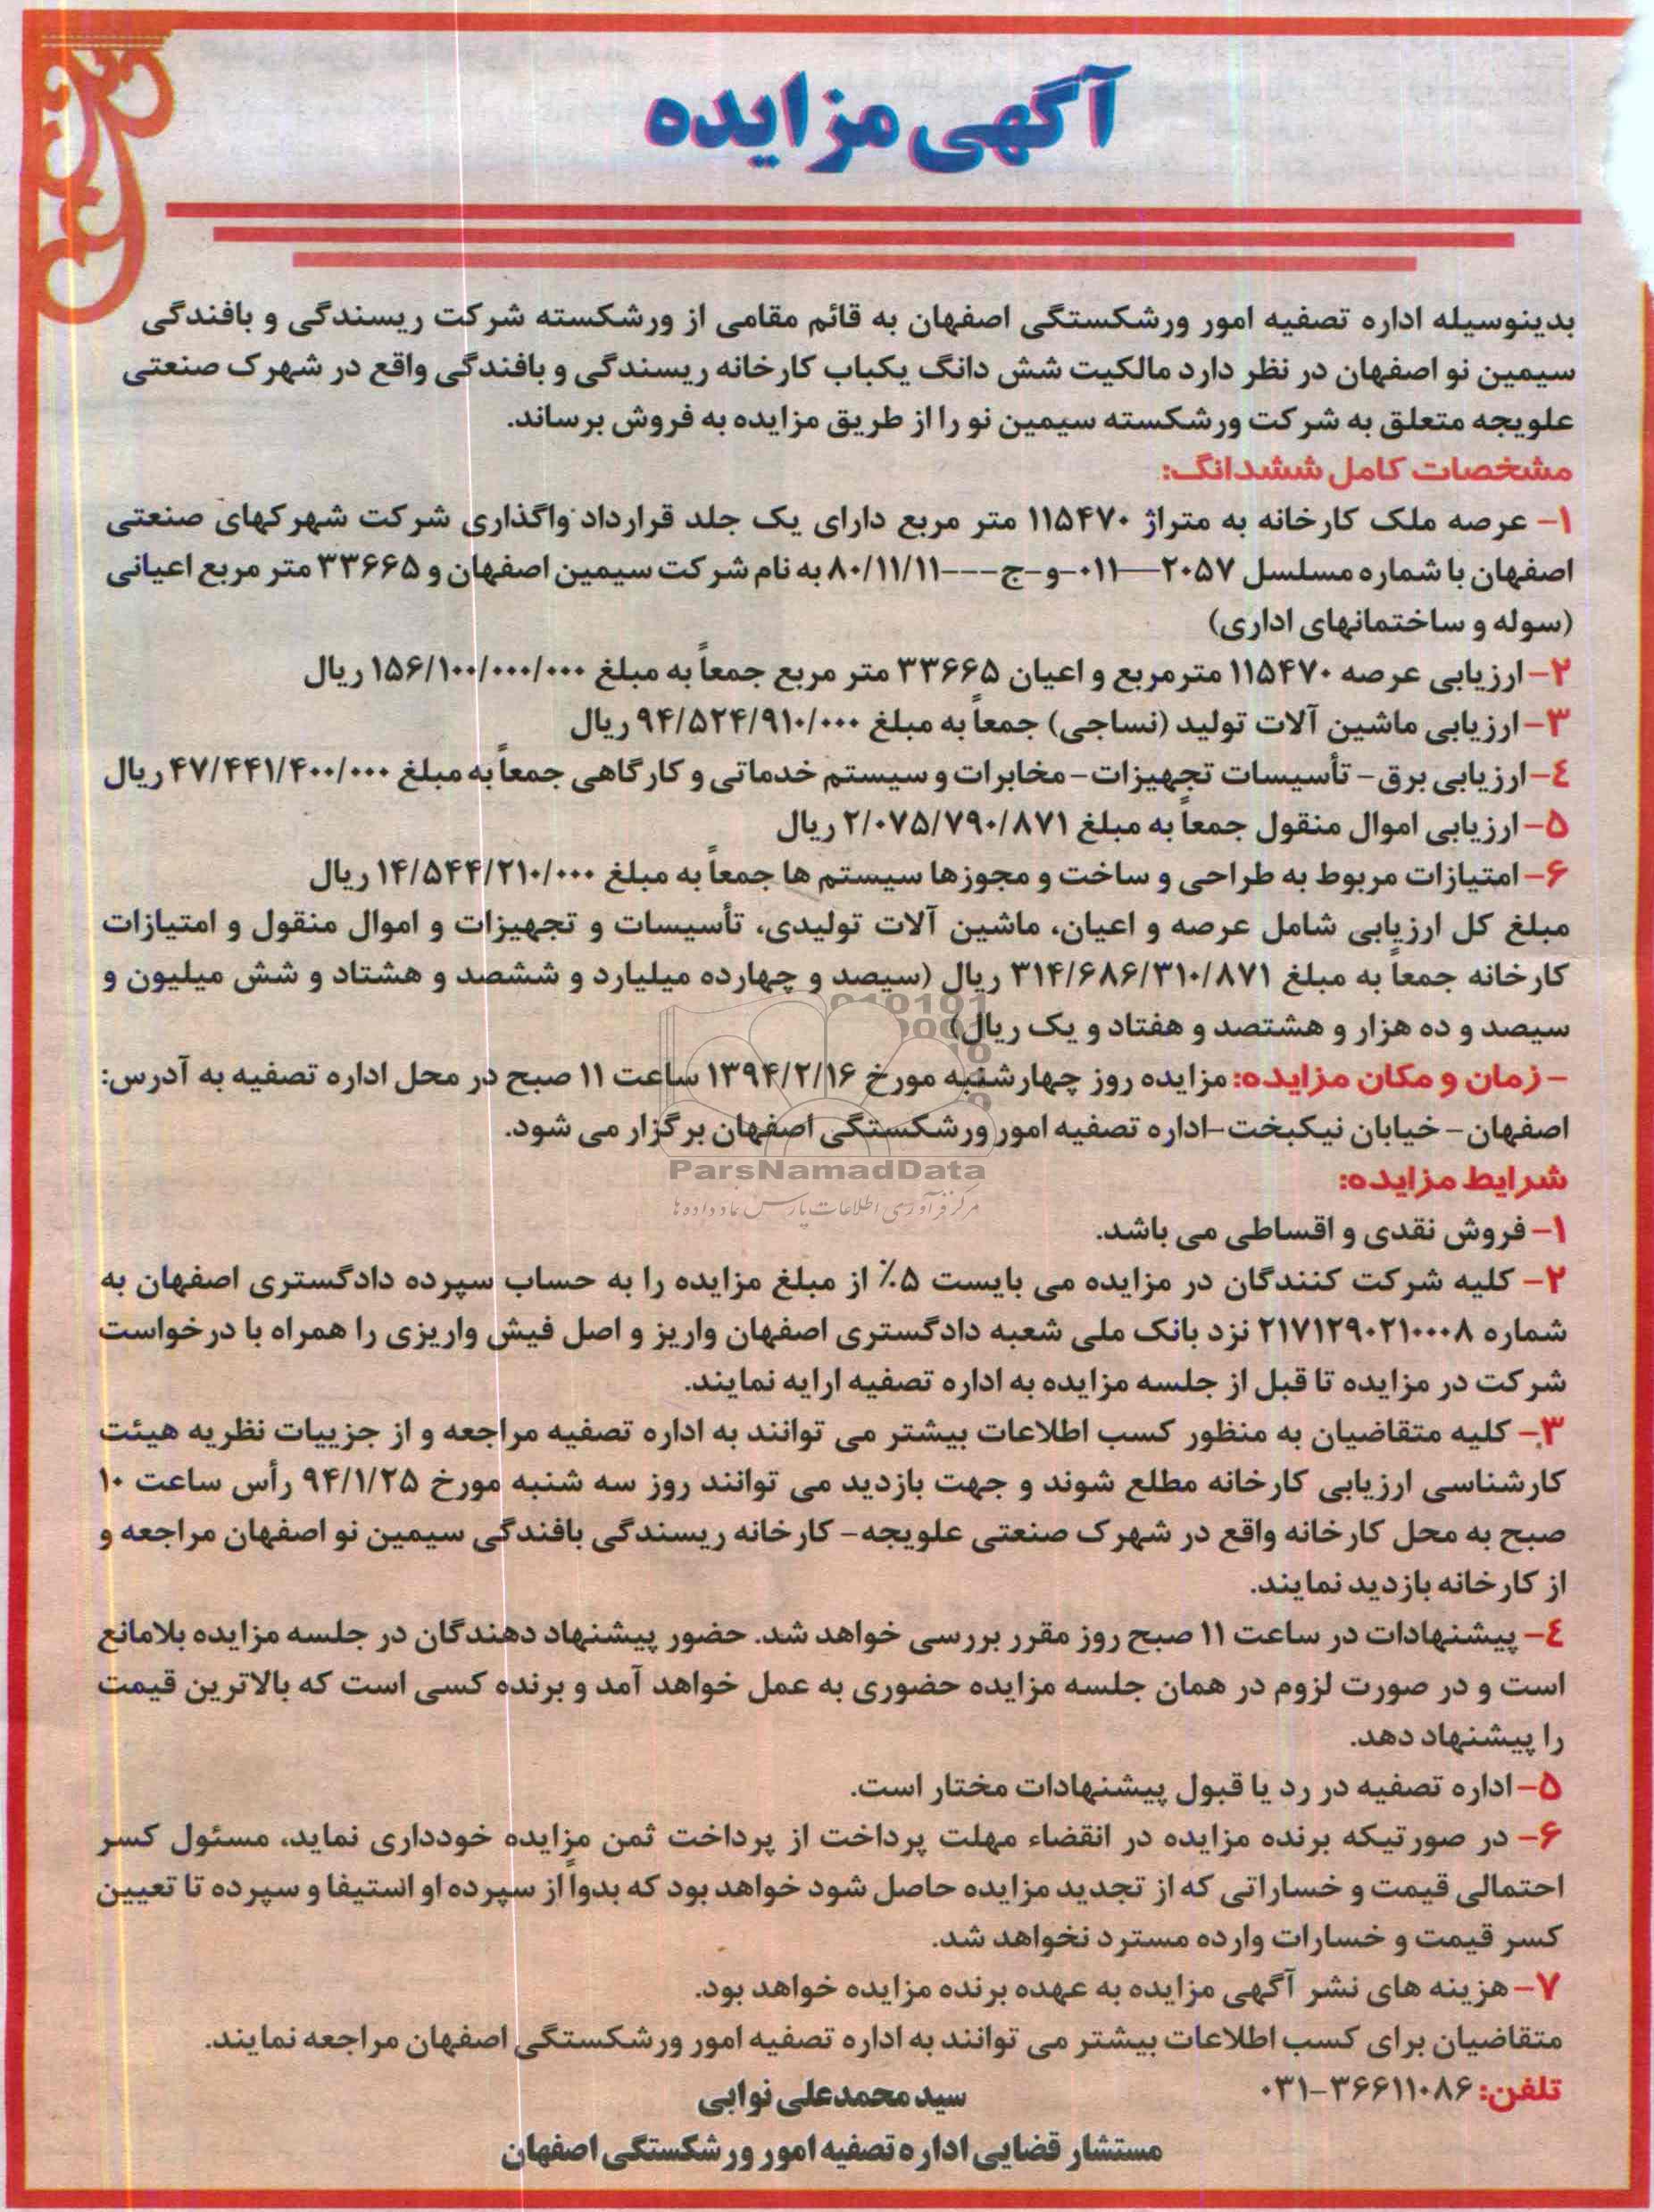 آگهی مزایده
بدینوسیله اداره تصفیه امور ورشکستگی اصفهان به قائم مقامی از ورشکسته شرکت ریسندگی و بافندگی
سیمین نو اصفهان در نظر دارد مالکیت شش دانگ یکباب کارخانه ریسندگی و بافندگی واقع در شهرک صنعتی
علویجه متعلق به شرکت ورشکسته سیمین نو را از طریق مزایده به فروش برساند.
مشخصات کامل ششدانگ:
۱- عرصه ملک کارخانه به متراژ ۱۱۵۴۷۰ متر مربع دارای یک جلد قرارداد واگذاری شرکت شهرکهای صنعتی
اصفهان با شماره مسلسل ۲۰۵۷—۰۱۱-و-ج---۸۰/۱۱/۱۱ به نام شرکت سیمین اصفهان و ۳۳۶۶۵ متر مربع اعیانی
(سوله و ساختمانهای اداری)
۲- ارزیابی عرصه ۱۱۵۴۷۰ مترمربع و اعیان ۳۳۶۶۵ متر مربع جمعاً به مبلغ ۱۵۶/۱۰۰/۰۰۰/۰۰۰ ریال
۳- ارزیابی ماشین آلات تولید (نساجی) جمعاً به مبلغ ۹۴/۵۲۴/۹۱۰/۰۰۰ ریال
٤- ارزیابی برق- تأسیسات تجهیزات- مخابرات و سیستم خدماتی و کارگاهی جمعاً به مبلغ ۴۷/۴۴۱/۴۰۰/۰۰۰ ریال
۵- ارزیابی اموال منقول جمعاً به مبلغ ۲/۰۷۵/۷۹۰/۸۷۱ ریال
۶- امتیازات مربوط به طراحی و ساخت و مجوزها سیستم ها جمعاً به مبلغ ۱۴/۵۴۴/۲۱۰/۰۰۰ ریال
مبلغ کل ارزیابی شامل عرصه و اعیان، ماشین آلات تولیدی، تأسیسات و تجهیزات و اموال منقول و امتیازات
کارخانه جمعاً به مبلغ ۳۱۴/۶۸۶/۳۱۰/۸۷۱ ریال (سیصد و چهارده میلیارد و ششصد و هشتاد و شش میلیون و
سیصد و ده هزار و هشتصد و هفتاد و یک ریال)
- زمان و مکان مزایده: مزایده روز چهارشنبه مورخ ۱۳۹۴/۲/۱۶ ساعت ۱۱ صبح در محل اداره تصفیه به آدرس:
اصفهان- خیابان نیکبخت-اداره تصفیه امور ورشکستگی اصفهان برگزار می شود.
ParsNamadData
مرکز فرآوری اطلاعات پارس نماد داده ها
شرایط مزایده:
۱- فروش نقدی و اقساطی می باشد.
۲- کلیه شرکت کنندگان در مزایده می بایست ۵٪ از مبلغ مزایده را به حساب سپرده دادگستری اصفهان به
شماره ۲۱۷۱۲۹۰۲۱۰۰۰۸ نزد بانک ملی شعبه دادگستری اصفهان واریز و اصل فیش واریزی را همراه با درخواست
شرکت در مزایده تا قبل از جلسه مزایده به اداره تصفیه ارایه نمایند.
۳- کلیه متقاضیان به منظور کسب اطلاعات بیشتر می توانند به اداره تصفیه مراجعه و از جزییات نظریه هیئت
کارشناسی ارزیابی کارخانه مطلع شوند و جهت بازدید می توانند روز سه شنبه مورخ ۹۴/۱/۲۵ رأس ساعت ۱۰
صبح به محل کارخانه واقع در شهرک صنعتی علویجه- کارخانه ریسندگی بافندگی سیمین نو اصفهان مراجعه و
از کارخانه بازدید نمایند.
٤- پیشنهادات در ساعت ۱۱ صبح روز مقرر بررسی خواهد شد. حضور پیشنهاد دهندگان در جلسه مزایده بلامانع
است و در صورت لزوم در همان جلسه مزایده حضوری به عمل خواهد آمد و برنده کسی است که بالاترین قیمت
را پیشنهاد دهد.
۵- اداره تصفیه در رد یا قبول پیشنهادات مختار است.
۶- در صورتیکه برنده مزایده در انقضاء مهلت پرداخت از پرداخت ثمن مزایده خودداری نماید، مسئول کسر
احتمالی قیمت و خساراتی که از تجدید مزایده حاصل شود خواهد بود که بدواً از سپرده او استیفا و سپرده تا تعیین
کسر قیمت و خسارات وارده مسترد نخواهد شد.
۷- هزینه های نشر آگهی مزایده به عهده برنده مزایده خواهد بود.
متقاضیان برای کسب اطلاعات بیشتر می توانند به اداره تصفیه امور ورشکستگی اصفهان مراجعه نمایند.
تلفن: ۳۶۶۱۱۰۸۶-۰۳۱
سید محمدعلی نوابی
مستشار قضایی اداره تصفیه امور ورشکستگی اصفهان